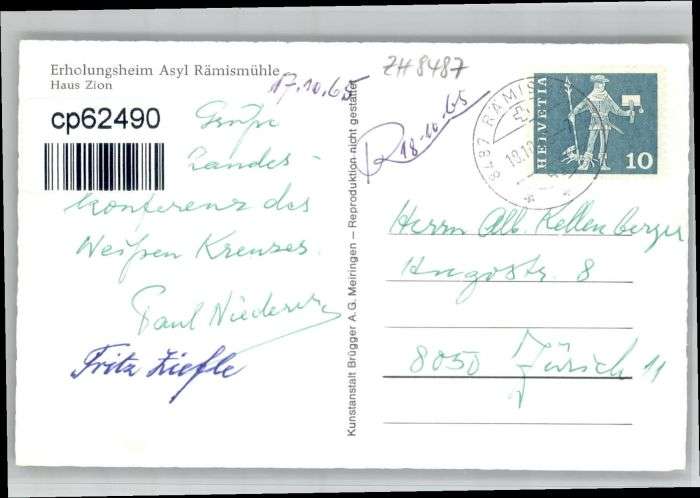 Erholungsheim Asyl Rämismühle
Haus Zion
17.10.65
cp62490
Grüße
Landes-
konferenz des
Weißen Kreuzes.
Paul Niederer
Fritz Ziefle
Kunstanstalt Brügger A.G. Meiringen – Reproduktion nicht gestattet
ZH 8487
R 18.10.65
8487 RÄMIS
18.10.
HELVETIA
10
Herrn Alb. Kellenberger
Hugostr. 8
8050 Zürich 11